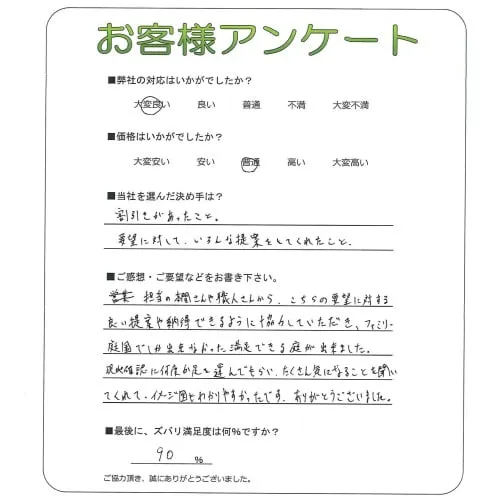 お客様アンケート
■弊社の対応はいかがでしたか?
大変良い 良い 普通 不満 大変不満
■価格はいかがでしたか?
大変安い 安い 普通 高い 大変高い
■当社を選んだ決め手は?
割引きがあったこと。
要望に対して、いろんな提案をしてくれたこと。
■ご感想・ご要望などをお書き下さい。
営業 担当の棚さんや職人さんから、こちらの要望に対する
良い提案や納得できるように協力していただき、ファミリー
庭園でしか出来なかった満足できる庭が出来ました。
現地確認に何度か足を運んでもらい、たくさん気になることを聞い
てくれて、イメージ図もわかりやすかったです。ありがとうございました。
■最後に、ズバリ満足度は何%ですか?
90 %
ご協力頂き、誠にありがとうございました。